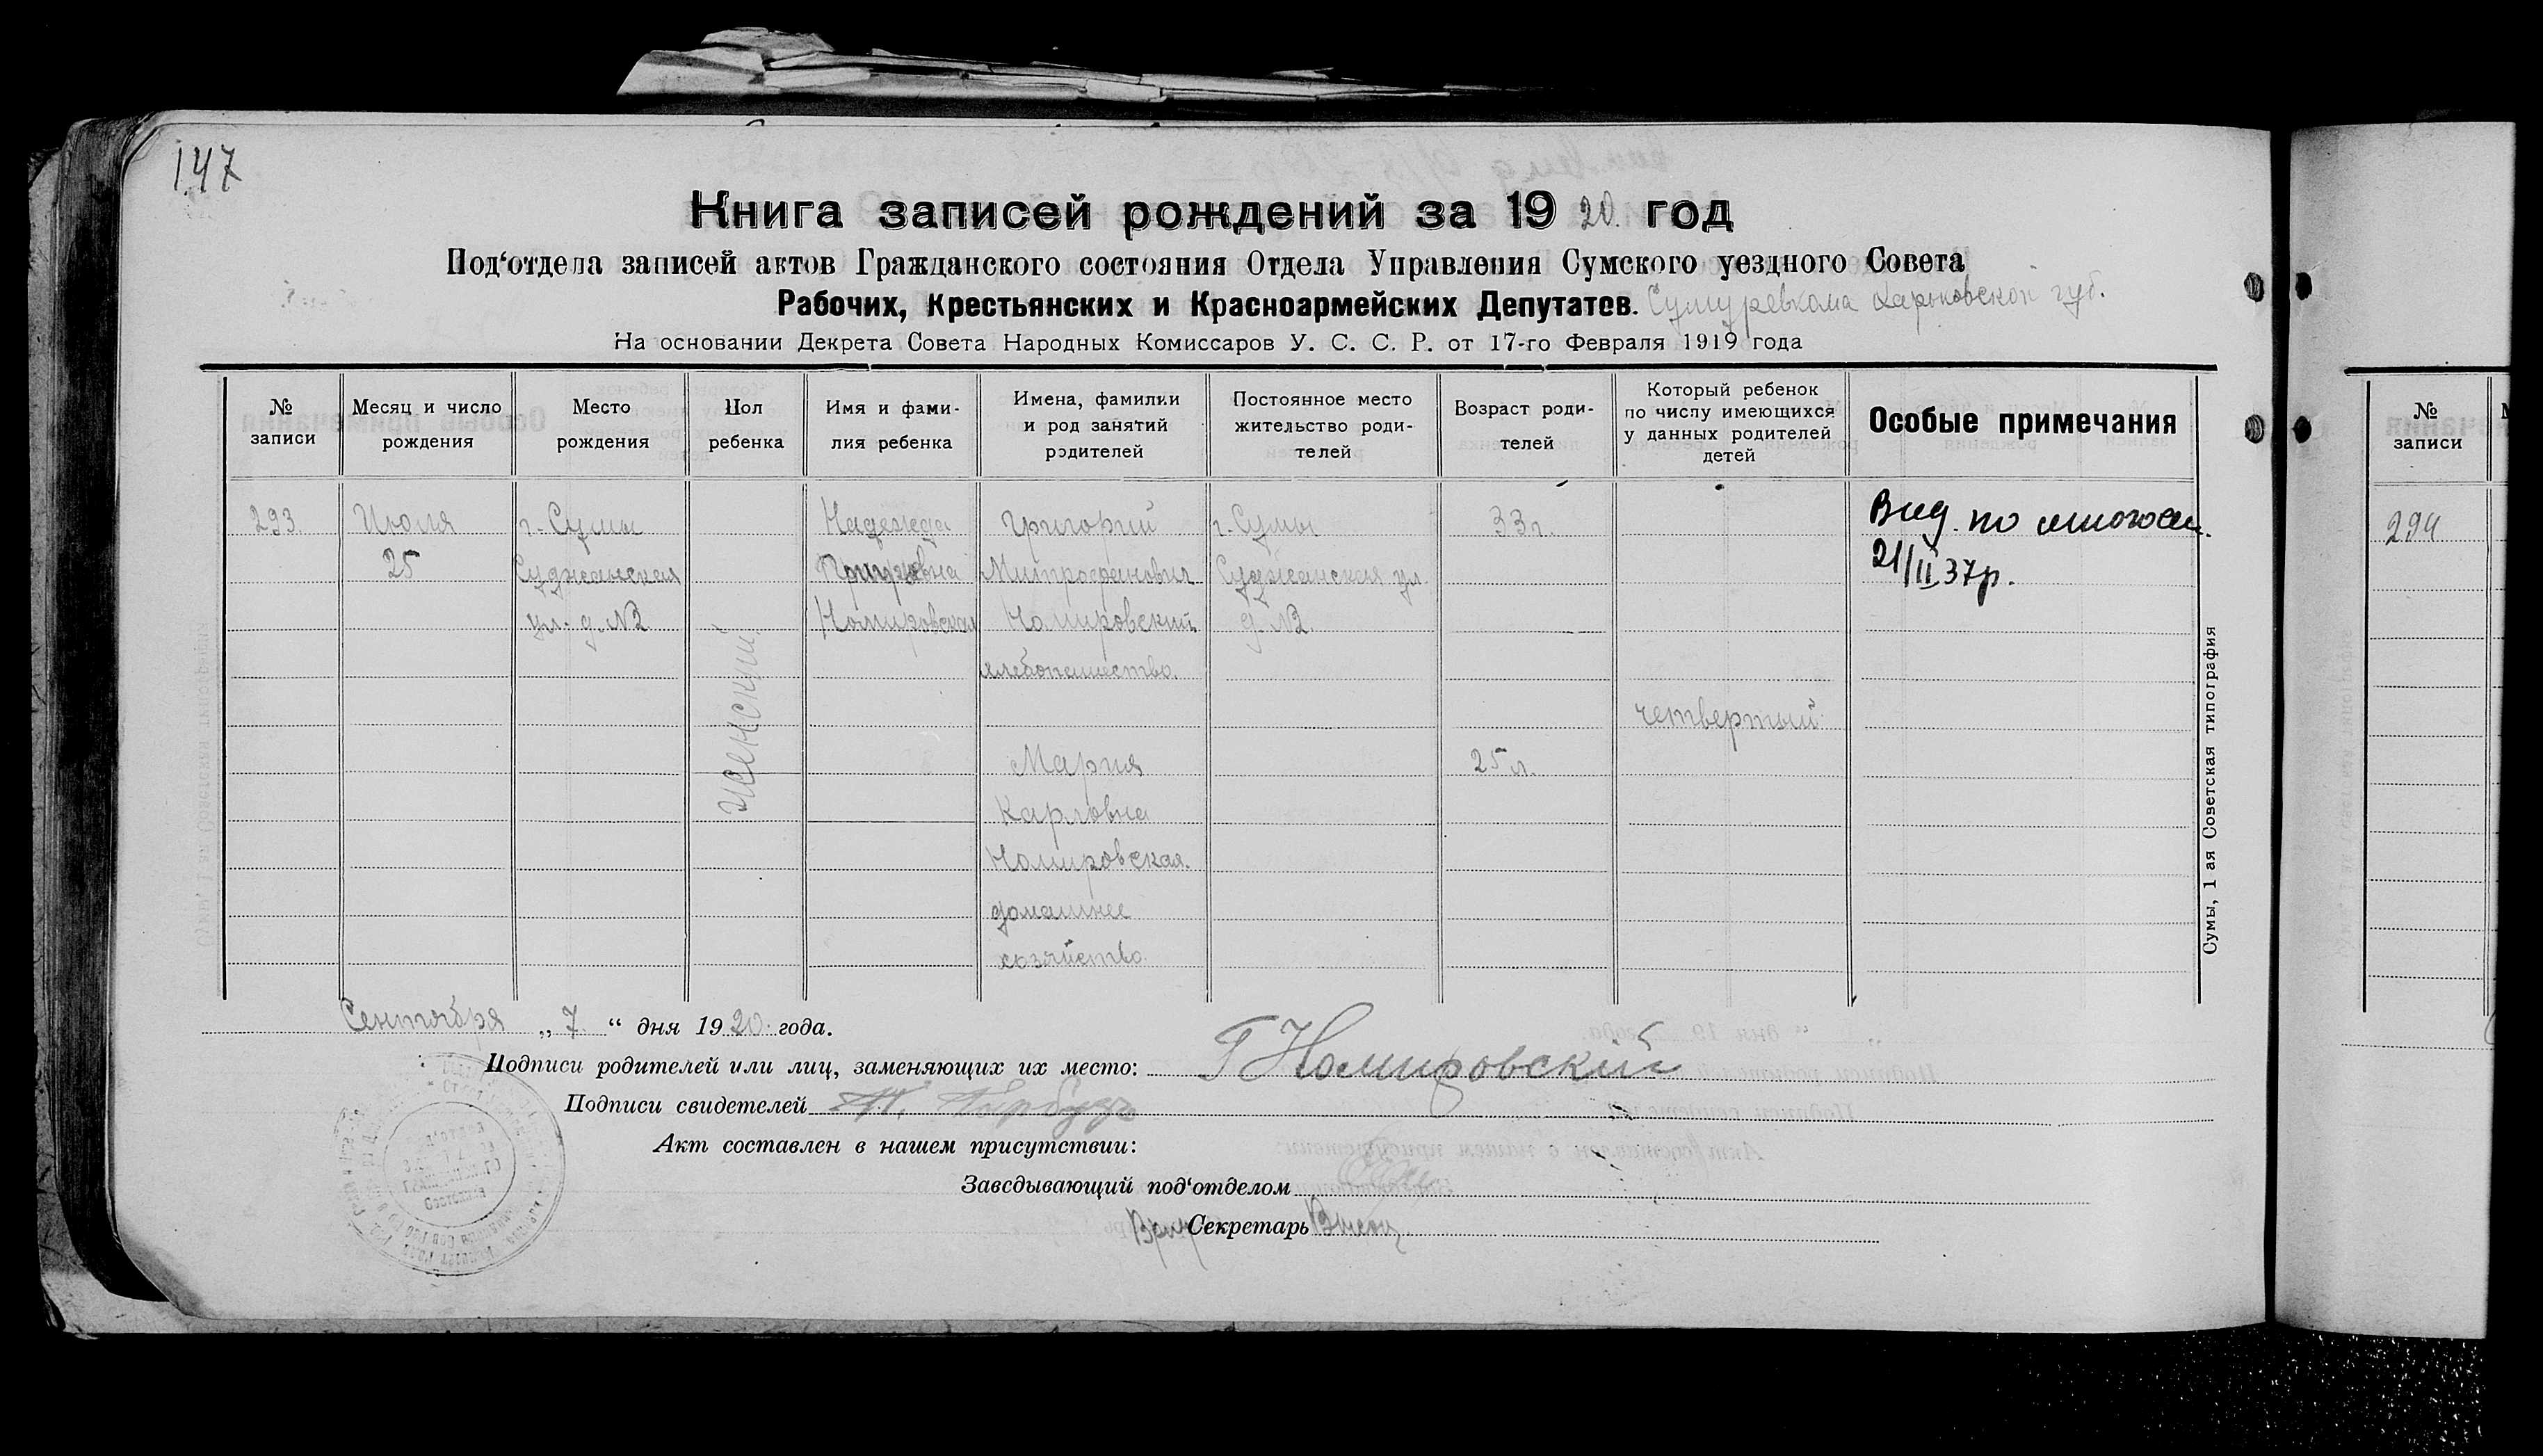 147
Книга записей рождений за 1920. год
Под‘отдела записей актов Гражданского состояния Отдела Управления Сумского уездного Совета
Рабочих, Крестьянских и Красноармейских Депутатов. Сумуревкома Харьковской губ.
На основании Декрета Совета Народных Комиссаров У. С. С. Р. от 17-го Февраля 1919 года
№ записи
Месяц и число рождения
Место рождения
Пол ребенка
Имя и фами-
лия ребенка
Имена, фамилии
и род занятий
родителей
Постоянное место
жительство роди-
телей
Возраст роди-
телей
Который ребенок
по числу имеющихся
у данных родителей
детей
Особые примечания
293.
Июля
25
г. Сумы
Суджанская
ул. д. №2
женский
Надежда
Номировская
Григорий
Митрофанович
Номировский
хлебопашество.
Мария
Карловна
Номировская.
домашнее
хозяйство
г. Сумы
Суджанская ул.
д. №2
33 г.
25 л.
четвертый
Вид. по
21/II 37р.
Сумы, 1 ая Советская типография
Сентября „7“ дня 1920 года.
Подписи родителей или лиц, заменяющих их место: Г Номировский
Подписи свидетелей
Акт составлен в нашем присутствии:
Заведывающий под‘отделом
Секретарь
№
записи
294